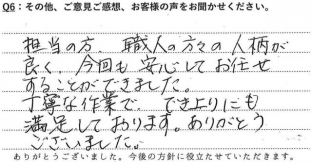 Q6：その他、ご意見ご感想、お客様の声をお聞かせください。
担当の方、職人の方々の人柄が
良く、今回も安心してお任せ
することができました。
丁寧な作業で、でき上りにも
満足しております。ありがとう
ございました。
ありがとうございました。今後の方針に役立たせていただきます。